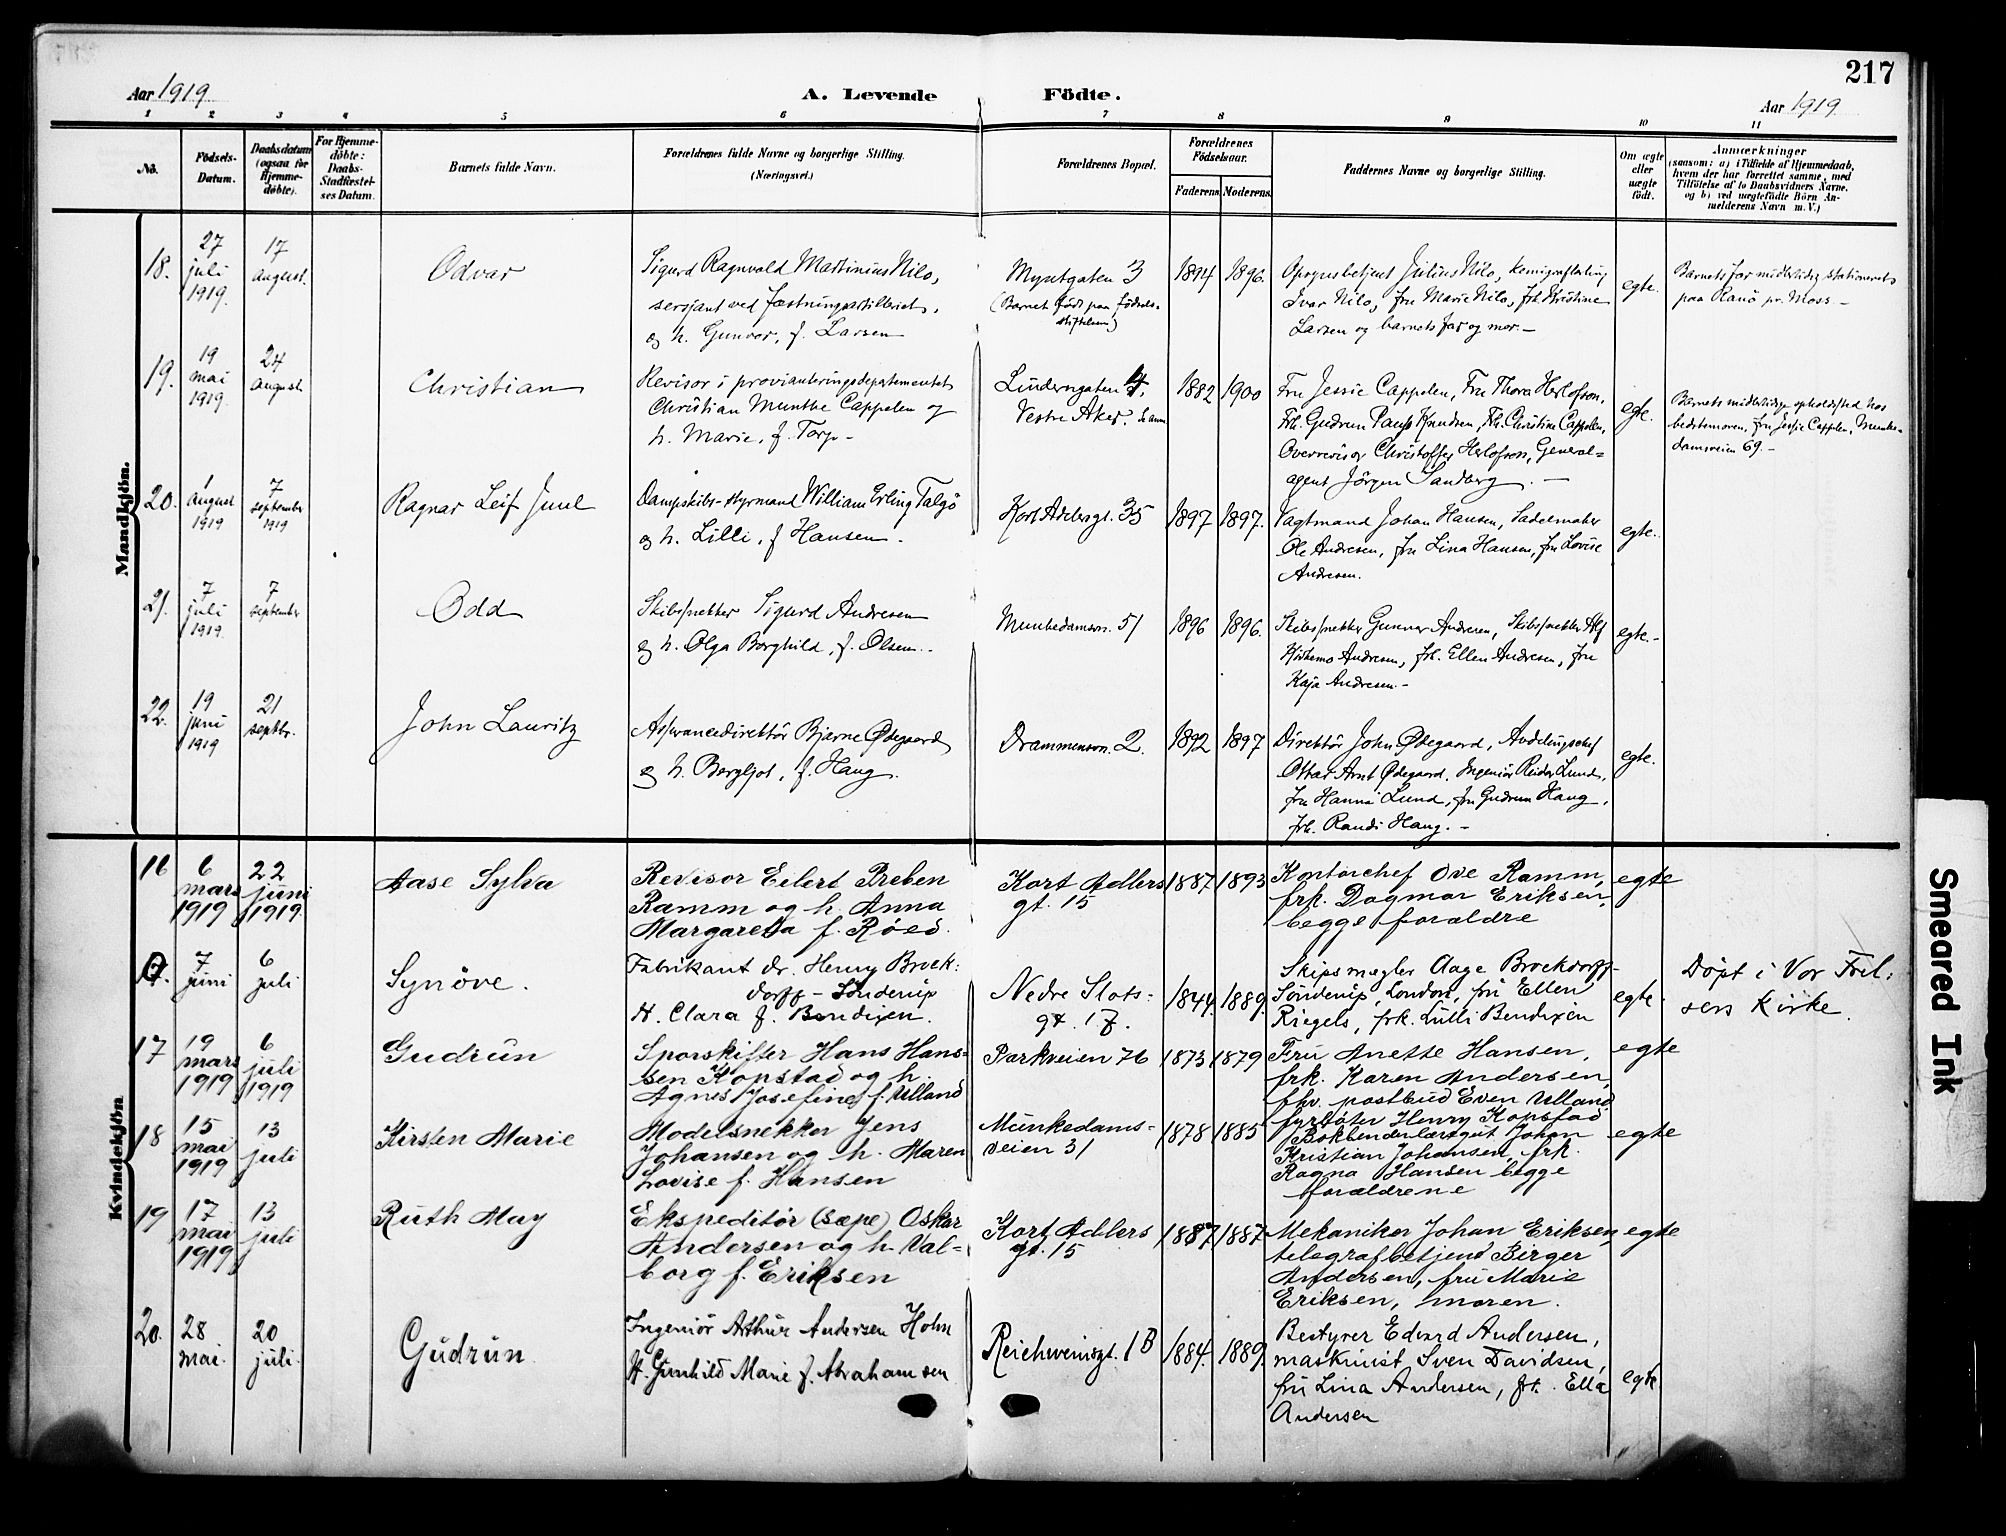 217
Aar 1919.
A. Levende Födte.
Aar 1919.
1 2 3 4 5 6 7 8 9 10 11
No.
Födsels-
Datum.
Daabsdatum
(ogsaa for
Hjemme-
döbte).
For Hjemme-
döbte:
Daabs-
Stadfæstel-
ses Datum.
Barnets fulde Navn.
Forældrenes fulde Navne og borgerlige Stilling.
(Næringsvei.)
Forældrenes Bopæl.
Forældrenes
Födselsaar.
Faderens Moderens.
Faddernes Navne og borgerlige Stilling.
Om ægte
eller
uægte
födt.
Anmærkninger
(saasom: a) i Tilfælde af Hjemmedaab,
hvem der har forrettet samme, med
Tilföielse af to Daabsvidners Navne.
og b) ved uægtefödte Börn An-
melderens Navn m. V.)
Mandkjön.
18.
27
juli
1919.
17
august.
Odvar
Sigurd Ragnvald Martinius Nilo,
sersjant ved fæstningsartilleriet,
og h. Gunvor, f. Larsen
Myntgaten 3
(Barnet født paa fødsels-
stiftelsen)
1894 1896.
Opsynsbetjent Julius Nilo,
Ivar Nilo, fru Marie Nilo, frk. Kristine
Larsen og barnets far og mor. —
egte.
Barnets far midlertidig stationeret
paa Ranö pr. Moss —
19.
19
mai
1919.
24
august.
Christian
Revisor i provianteringsdepartementet
Christian Munthe Cappelen og
h. Marie, f. Torp -
Linderngaten 4,
Vestre Aker.
1882 1900
Fru Jessie Cappelen, Fru Thora Herlofson,
Frk. Gudrun Paus Knudsen, Frk. Christine Cappelen,
Overrevisor Christoffer Herlofson, General=
agent Jörgen Sandberg. —
egte.
Barnets midlertidige opholdssted hos
bedstemoren, fru Jessie Cappelen, Munke-
damsveien 69. -
20.
1
august
1919
7
september
1919
Ragnar Leif Juul
Dampskibs-styrmand William Erling Talgö
og h. Lilli, f. Hansen.
Kort Adelersgt. 35
1897 1897.
Vagtmand Johan Hansen, Sadelmaker
Ole Andresen, fru Lina Hansen, fru Lovise
Andresen.
egte.
21.
7
juli
1919.
7
september
Odd
Skibssnekker Sigurd Andresen
og h. Olga Borghild, f. Olsen.
Munkedamsvn. 51
1896 1896.
Skibssnekker Gunnar Andresen, Skibssnekker Alf
Andresen, frk. Ellen Andresen, fru
Kaja Andresen. -
egte. -
22.
19
juni
1919
21
septbr.
John Lauritz
Assurancedirektör Bjarne Ødegaard
og h. Bergljot, f. Haug.
Drammensvn. 2.
1892 1897
Direktör John Ødegaard, Avdelingschef
Ottar Arnt Ødegaard, Ingeniör Reidar Lund,
fru Hanna Lund, fru Gudrun Haug,
frk. Randi Haug. -
egte.
Kvindekjön
16
6
mars
1919
22
juni
1919.
Aase Sylva
Revisor Eilert Preben
Ramm og h. Anna
Margareta f. Röed.
Kort Adlers
gt. 15
1887 1893
Kontorchef Ove Ramm,
frk. Dagmar Eriksen,
begge forældre
egte
7
juni
6
juli
Synöve.
Fabrikant dr. Henry Brock:
dorff - Sönderup
H. Clara f. Bendixen.
Nedre Slots:
gt. 17.
1844. 1889.
Skipsmægler Aage Brockdorff-
Sönderup, London, fru Ellen
Riegels, frk. Lulli Bendixen
egte.
Döpt i Vor Frel:
sers Kirke.
17
19
mars
1919
6
juli
1919
Gudrun
Sporskifter Hans Hans-
sen Kopstad og h.
Agnes Josefine f. Ulland
Parkveien 76
1873 1879
Fru Anette Hansen,
frk. Karen Andersen,
fhv. postbud Even Ulland
fyrböter Henry Kopstad
egte
18
15
mai
1919
13
juli
Kirsten Marie
Modelsnekker Jens
Johansen og h. Maren
Lovise f. Hansen
Munkedams-
veien 31
1878 1885
Bokbinderlæregut Johan
Kristian Johansen, frk.
Ragna Hansen begge
forældrene
egte
19
17
mai
1919
13
juli
Ruth May
Ekspeditör (sæpe) Oskar
Andersen og h. Val-
borg f. Eriksen
Kort Adlers
gt. 15
1887 1887
Mekaniker Johan Eriksen,
telegrafbetjend Birger
Andersen, fru Marie
Eriksen, moren.
egte
20.
28
mai.
20
juli.
Gudrun
Ingeniör Arthur Andersen Holm
H. Gunhild Marie f. Abrahamsen
Reichweinsgt. 1B
1884. 1889.
Bestyrer Edvard Andersen,
maskinist Sven Davidsen,
fru Lina Andersen, frk. Ella
Andersen
egte.
Smeared Ink